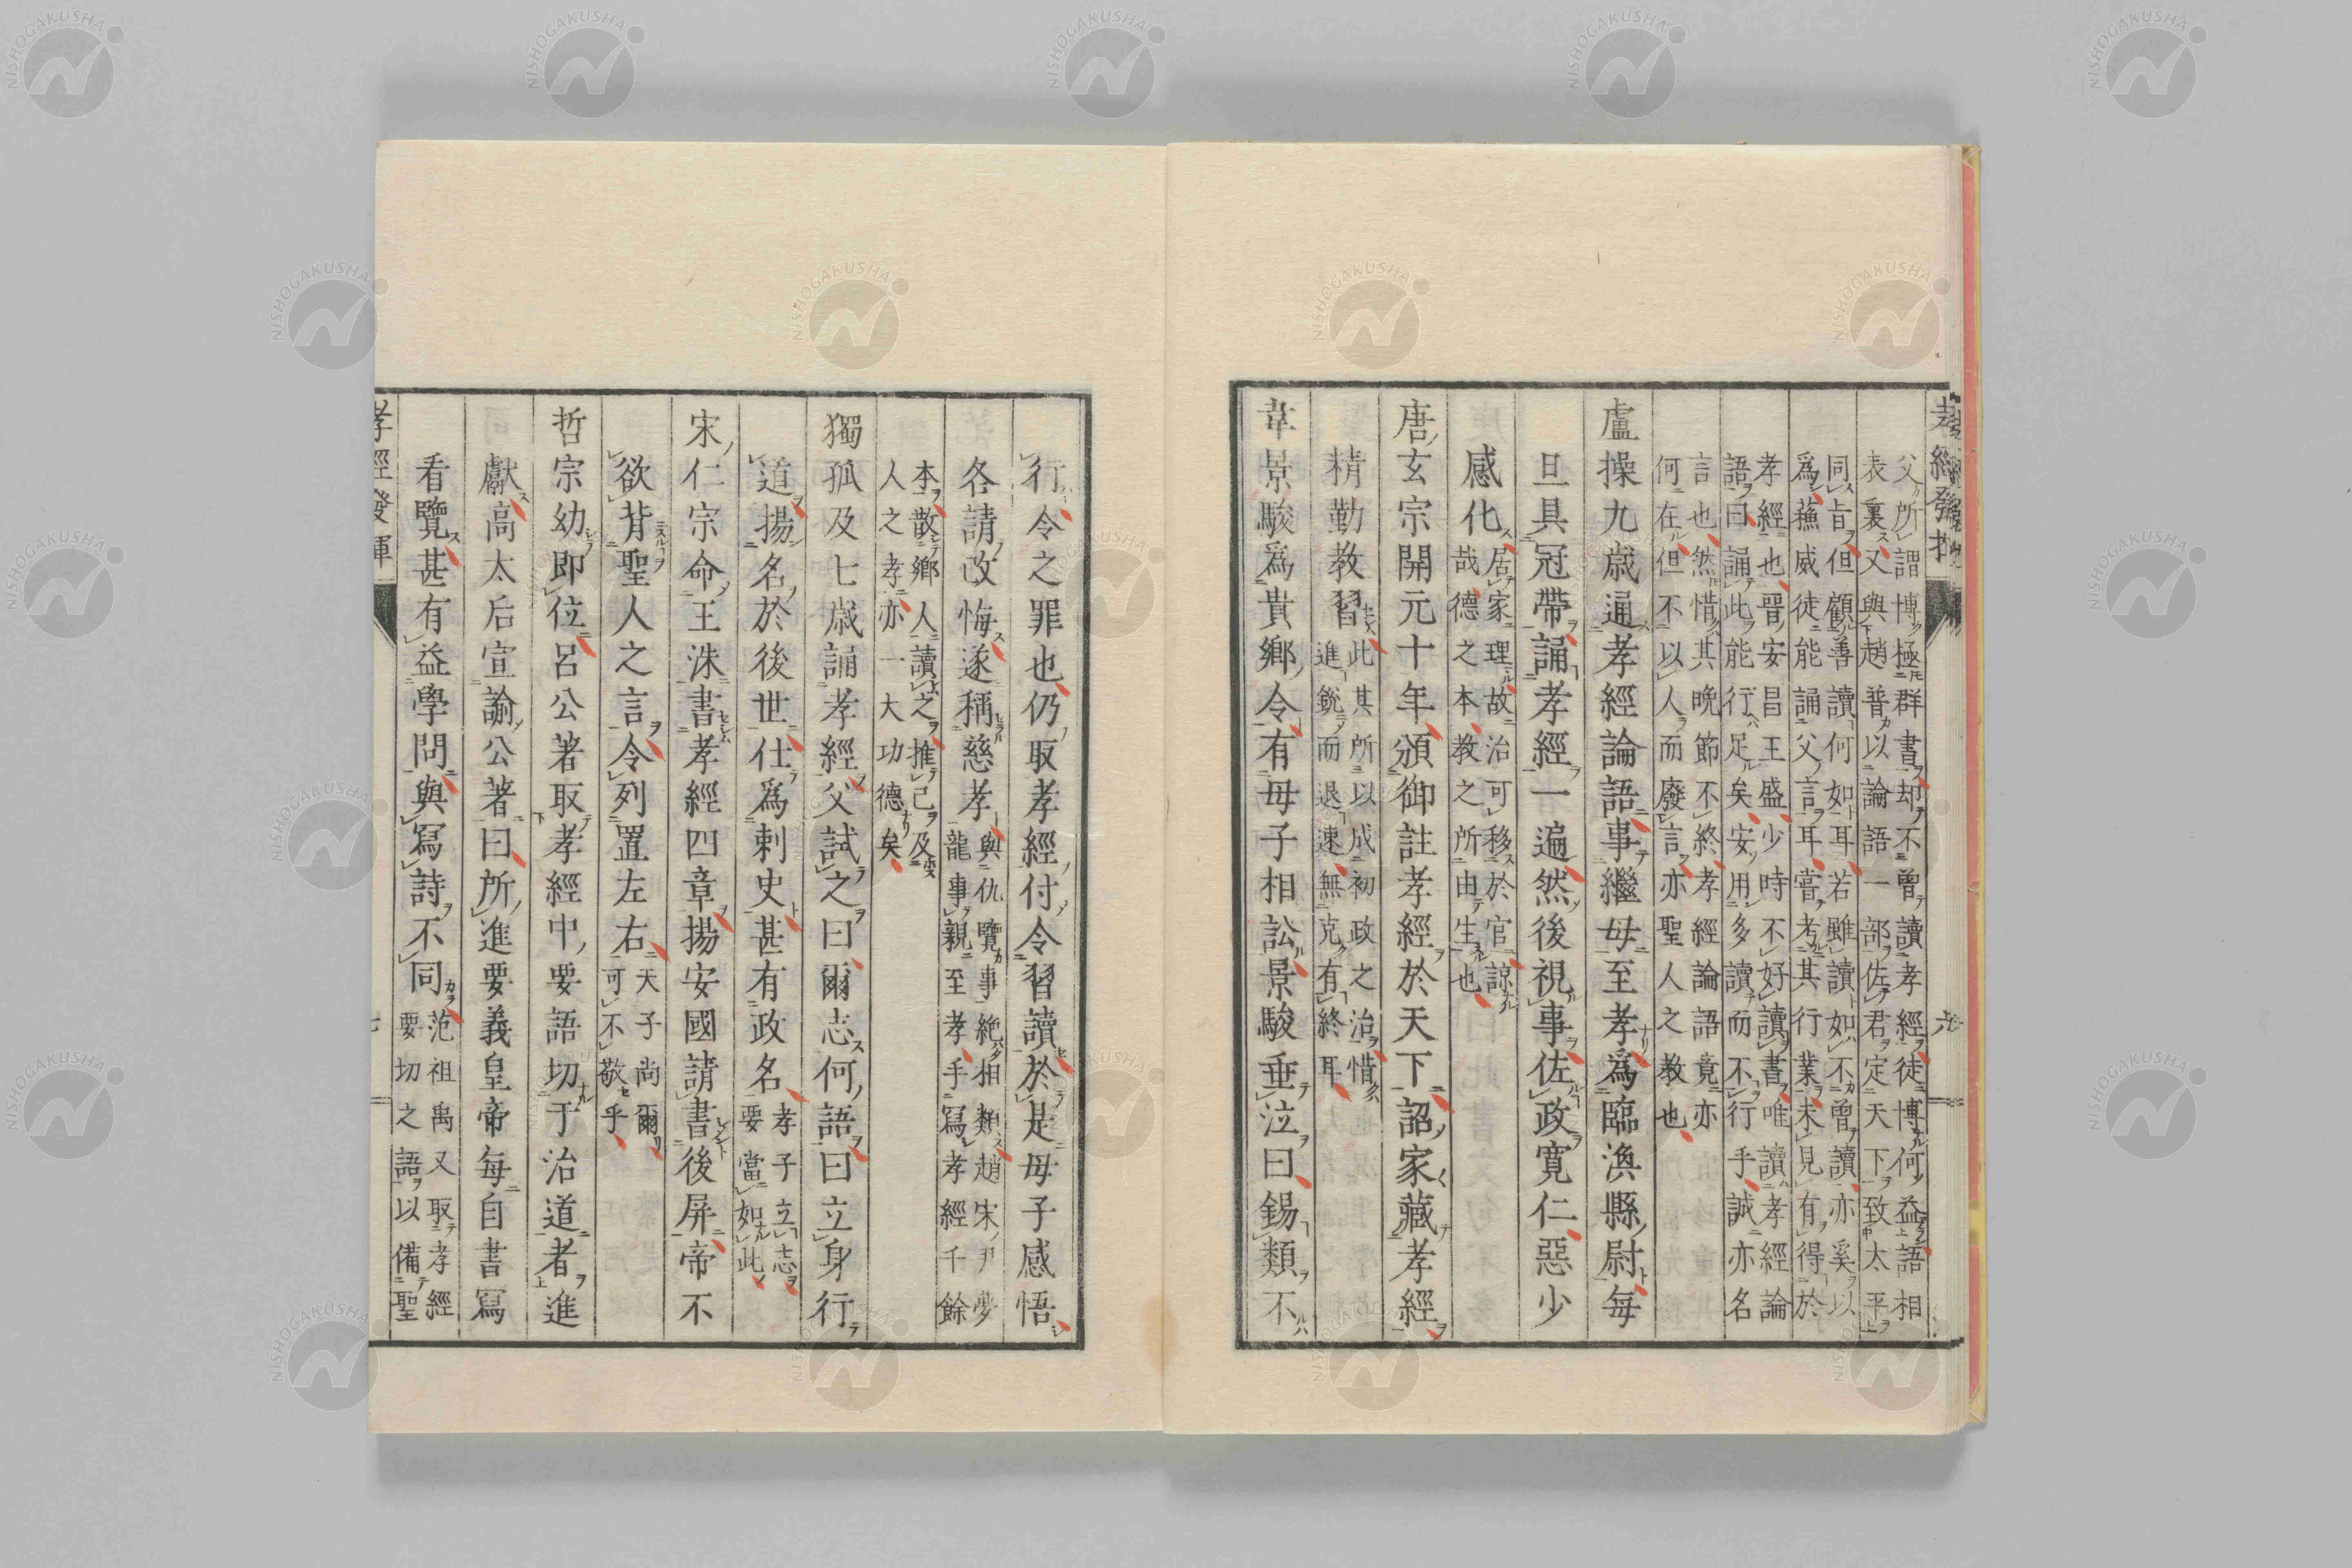 孝經發揮
父所謂博極群書却不曾讀孝經徒博何益語相
表裏又與趙普以論語一部佐君定天下致太平
同旨但顧善讀何如耳若雖讀如不曾讀亦奚以
爲蘓威徒能誦父言耳嘗考其行業未見有得於
孝經也晋安昌王盛少時不好讀書唯讀孝經論
語曰誦此能行足矣安用多讀而不行乎誠亦名
言也然惜其晚節不終孝經論語竟亦
何在但不以人而廢言亦聖人之教也
盧操九歳通孝經論語事繼母至孝爲臨渙縣尉毎
旦具冠帶誦孝經一遍然後視事佐政寛仁惡少
感化
居家理故治可移於官諒
哉德之本教之所由生也
唐玄宗開元十年頒御註孝經於天下詔家藏孝經
精勤教習
此其所以成初政之治惜
進銳而退速無克有終耳
韋景駿爲貴鄉令有母子相訟景駿垂泣曰錫類不
行令之罪也仍取孝經付令習讀於是母子感悟
各請改悔遂稱慈孝
與仇覽事絶相類趙宋尹夢
龍事親至孝手寫孝經千餘
本散鄉人讀之推己及
人之孝亦一大功德矣
獨孤及七歳誦孝經父試之曰爾志何語曰立身行
道揚名於後世仕爲刺史甚有政名
孝子立志
要當如此
宋仁宗命王洙書孝經四章揚安國請書後屏帝不
欲背聖人之言令列置左右
天子尚爾
可不敬乎
哲宗幼即位呂公著取孝經中要語切于治道者進
獻高太后宣諭公著曰所進要義皇帝毎自書寫
看覽甚有益學問與寫詩不同
范祖禹又取孝經
要切之語以備聖
孝經發揮
七